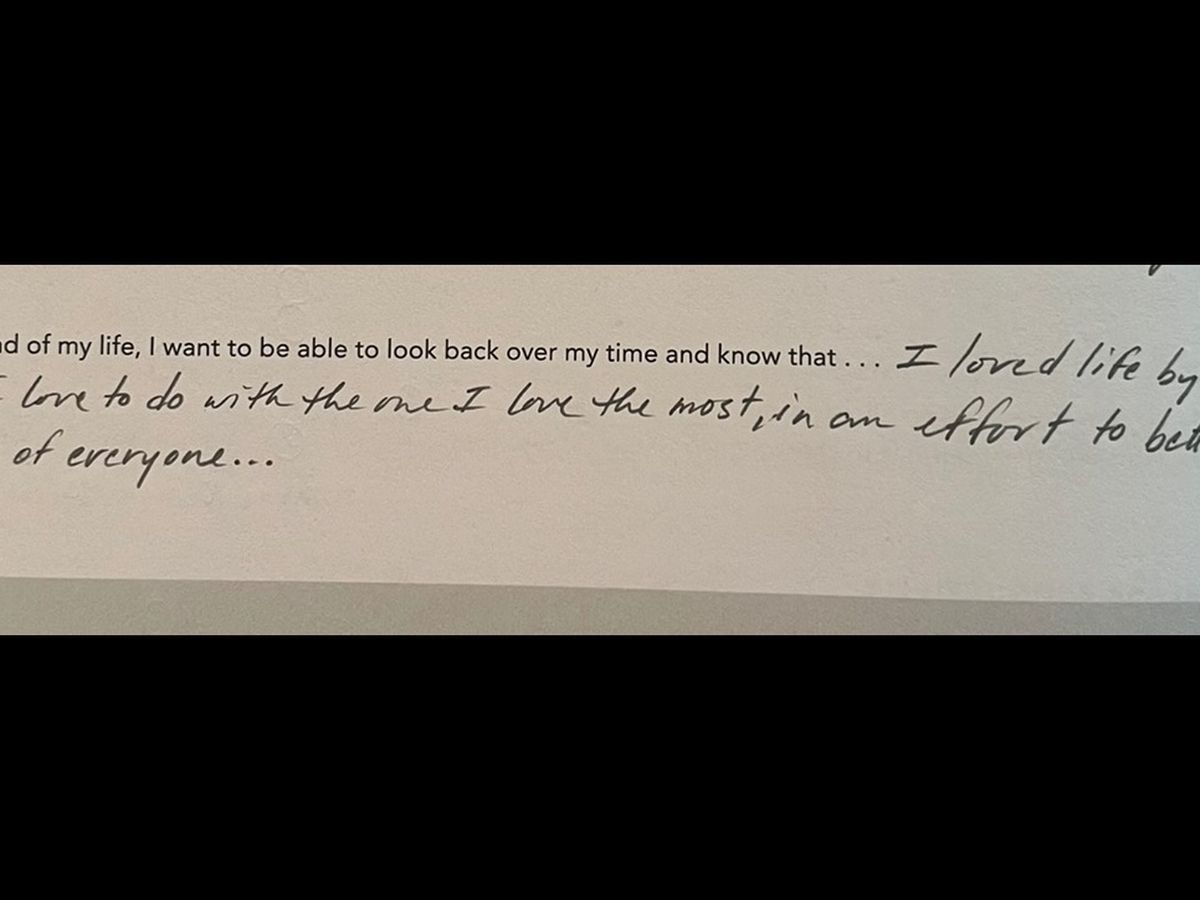 of my life, I want to be able to look back over my time and know that . . . I loved life by
love to do with the one I love the most, in an effort to
of everyone...